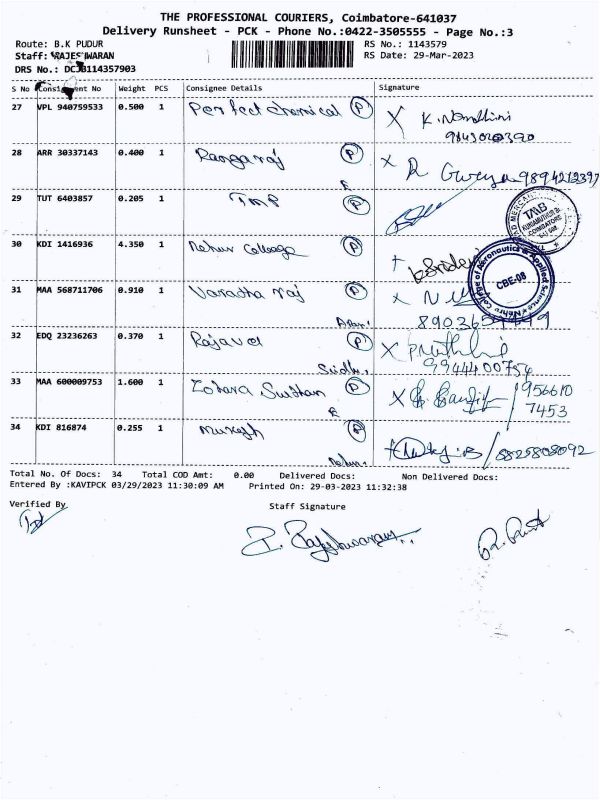 THE PROFESSIONAL COURIERS, Coimbatore-641037
Delivery Runsheet - PCK - Phone No.:0422-3505555 - Page No.:3
Route: B.K PUDUR
RS No.: 1143579
Staff: RAJESWARAN
RS Date: 29-Mar-2023
DRS No.: DCJB114357903
S No Consignment No Weight PCS Consignee Details Signature
27 VPL 940759533 0.500 1 Perfect chemical P X K. Nandhini
9843020390
28 ARR 30337143 0.400 1 Rangaraj P X R 9894212397
29 TUT 6403857 0.205 1 TMB P
TMB
COIMBATORE
30 KDI 1416936 4.350 1 Nehru College P
Nehru College of Aeronautics & Applied Science
CBE-08
31 MAA 568711706 0.910 1 Varadha raj P X
32 EDQ 23236263 0.370 1 Rajavel P X
9944400754
33 MAA 600009753 1.600 1 P X 956610
7453
34 KDI 816874 0.255 1 Mukesh P 8825808092
Total No. Of Docs: 34 Total COD Amt: 0.00 Delivered Docs: Non Delivered Docs:
Entered By :KAVIPCK 03/29/2023 11:30:09 AM Printed On: 29-03-2023 11:32:38
Verified By
Staff Signature